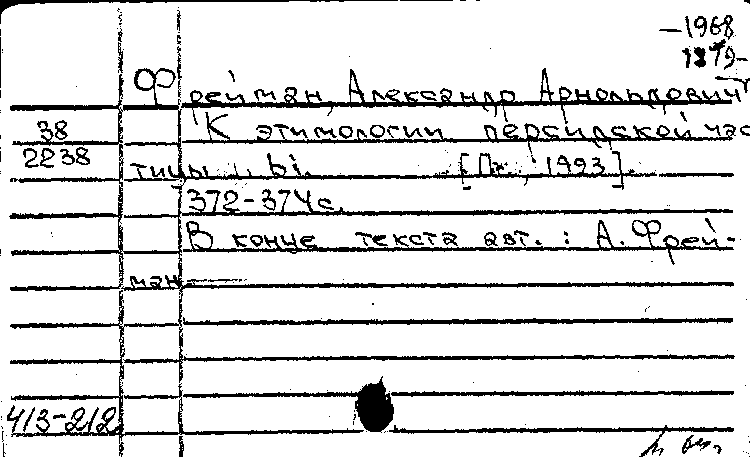 —1968
1879-
Фрейман, Александр Арнольдович
38 К этимологии персидской час
2238 тицы bi. [Пг., 1923].
372-374с.
В конце текста авт.: А. Фрей-
ман
413-212